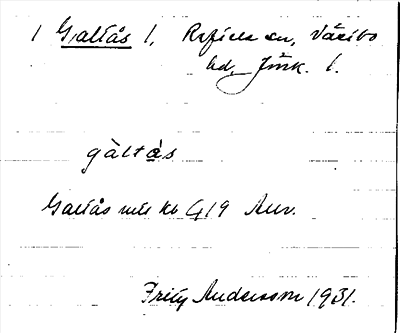 1 Galtås 1, Ryfors sn, Västbo
hd, Jönk. l.
gàltås
Galtås mtl kb G19 Anv.
Fritz Andersson 1931.